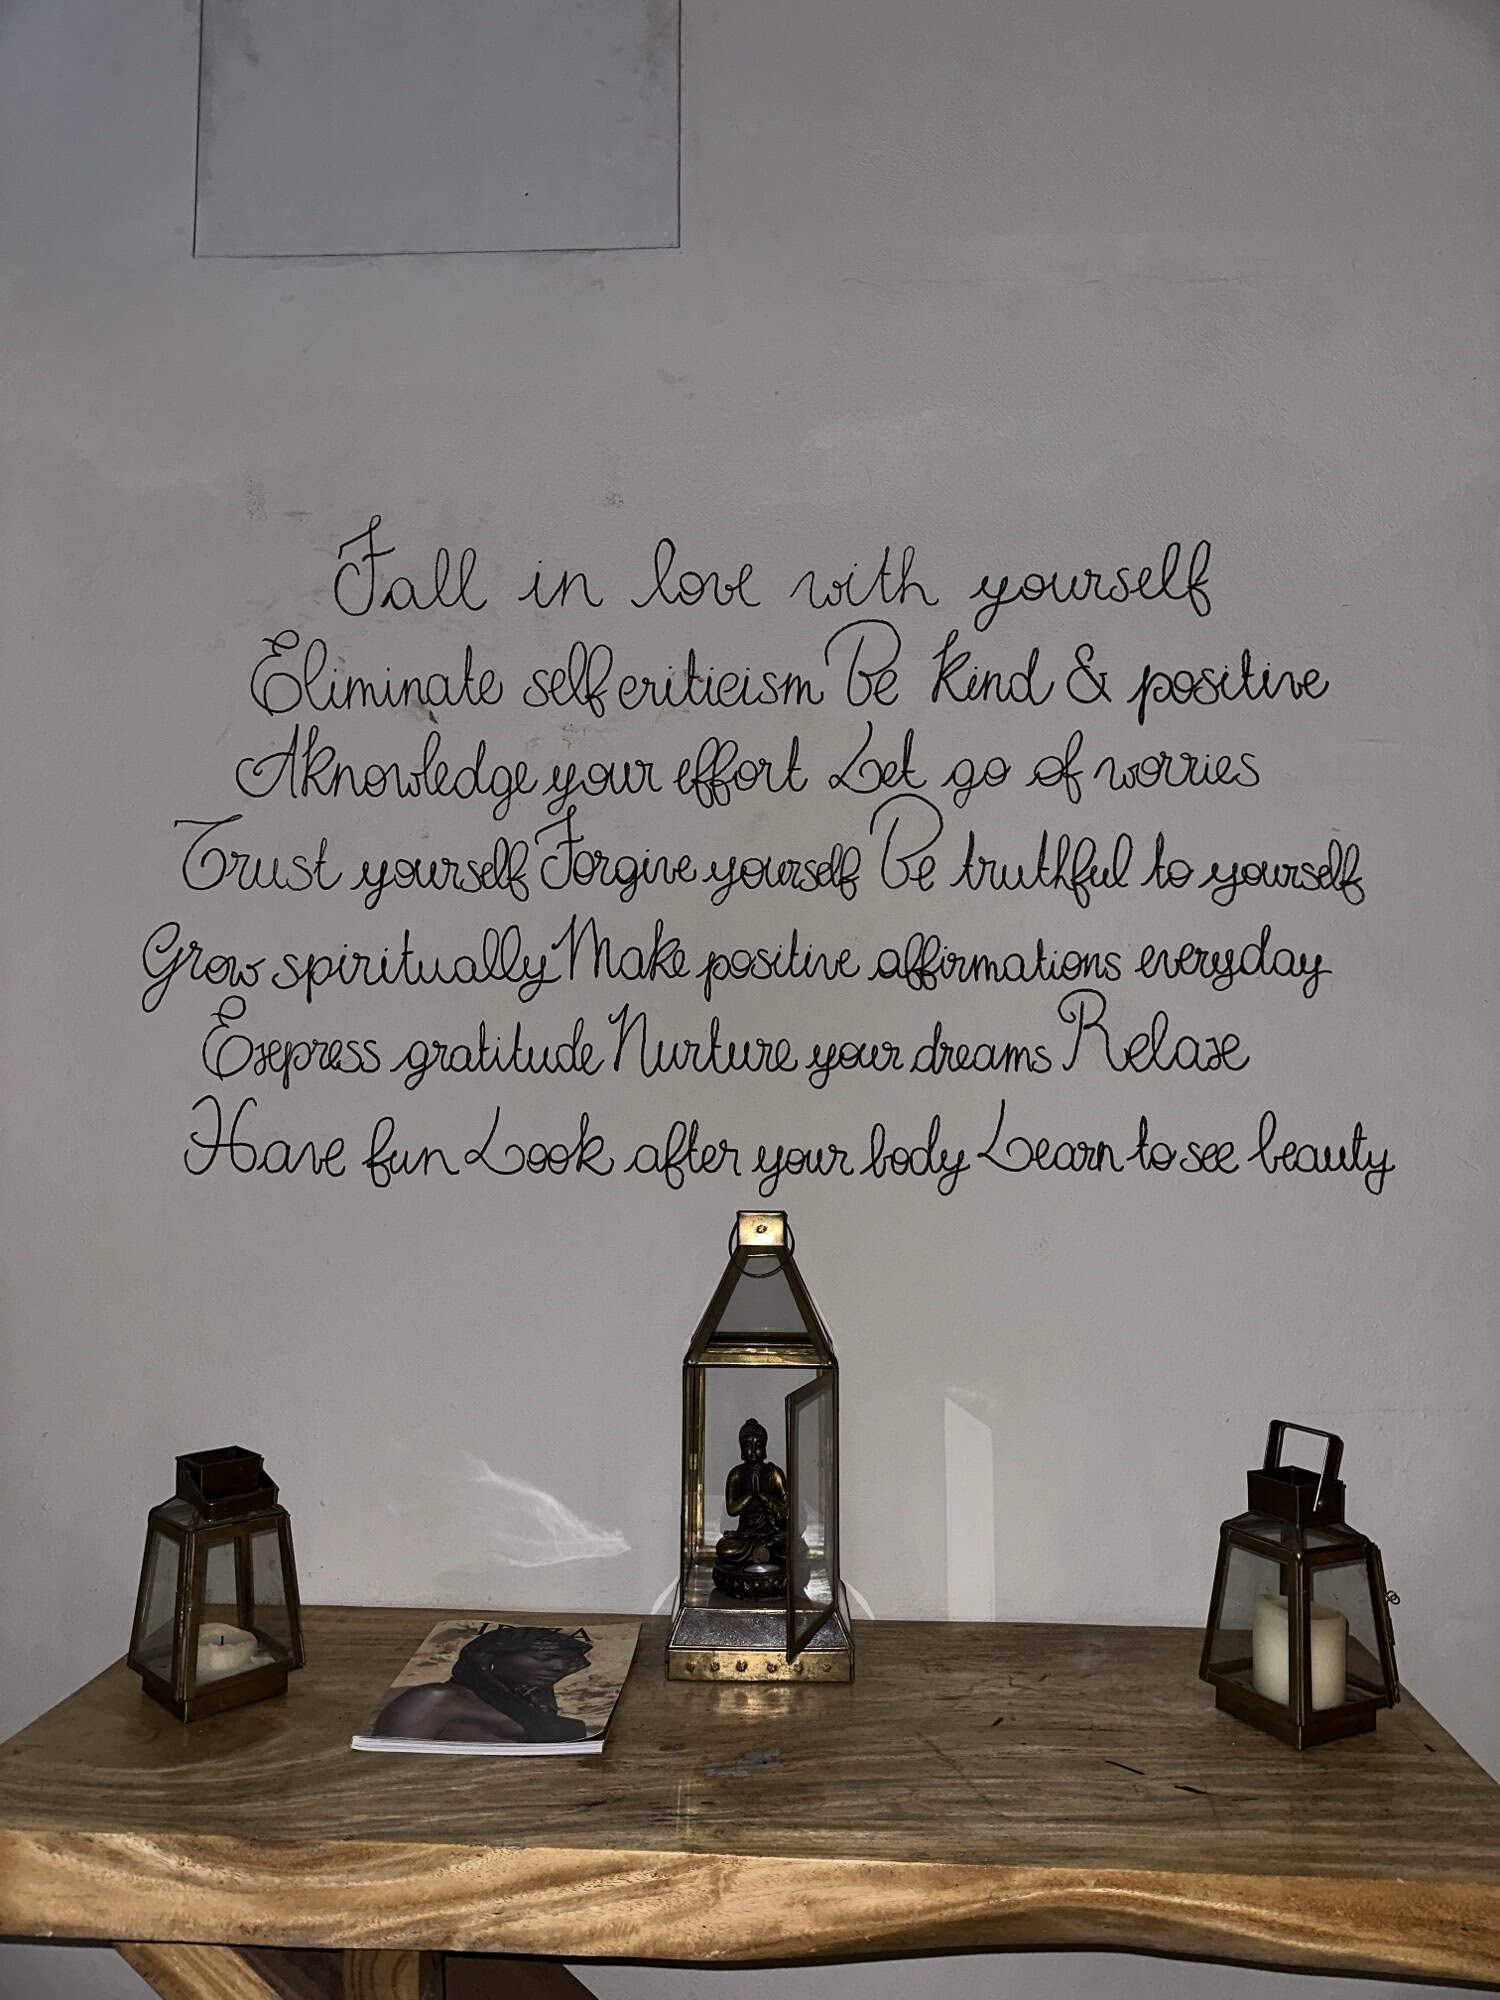 Fall in love with yourself
Eliminate self criticism Be kind & positive
Aknowledge your effort Let go of worries
Trust yourself Forgive yourself Be truthful to yourself
Grow spiritually Make positive affirmations everyday
Express gratitude Nurture your dreams Relax
Have fun Look after your body Learn to see beauty